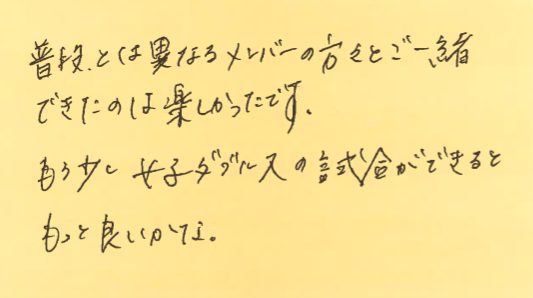 普段とは異なるメンバーの方々とご一緒
できたのは楽しかったです。
もう少し女子ダブルスの試合ができると
もっと良いかな。